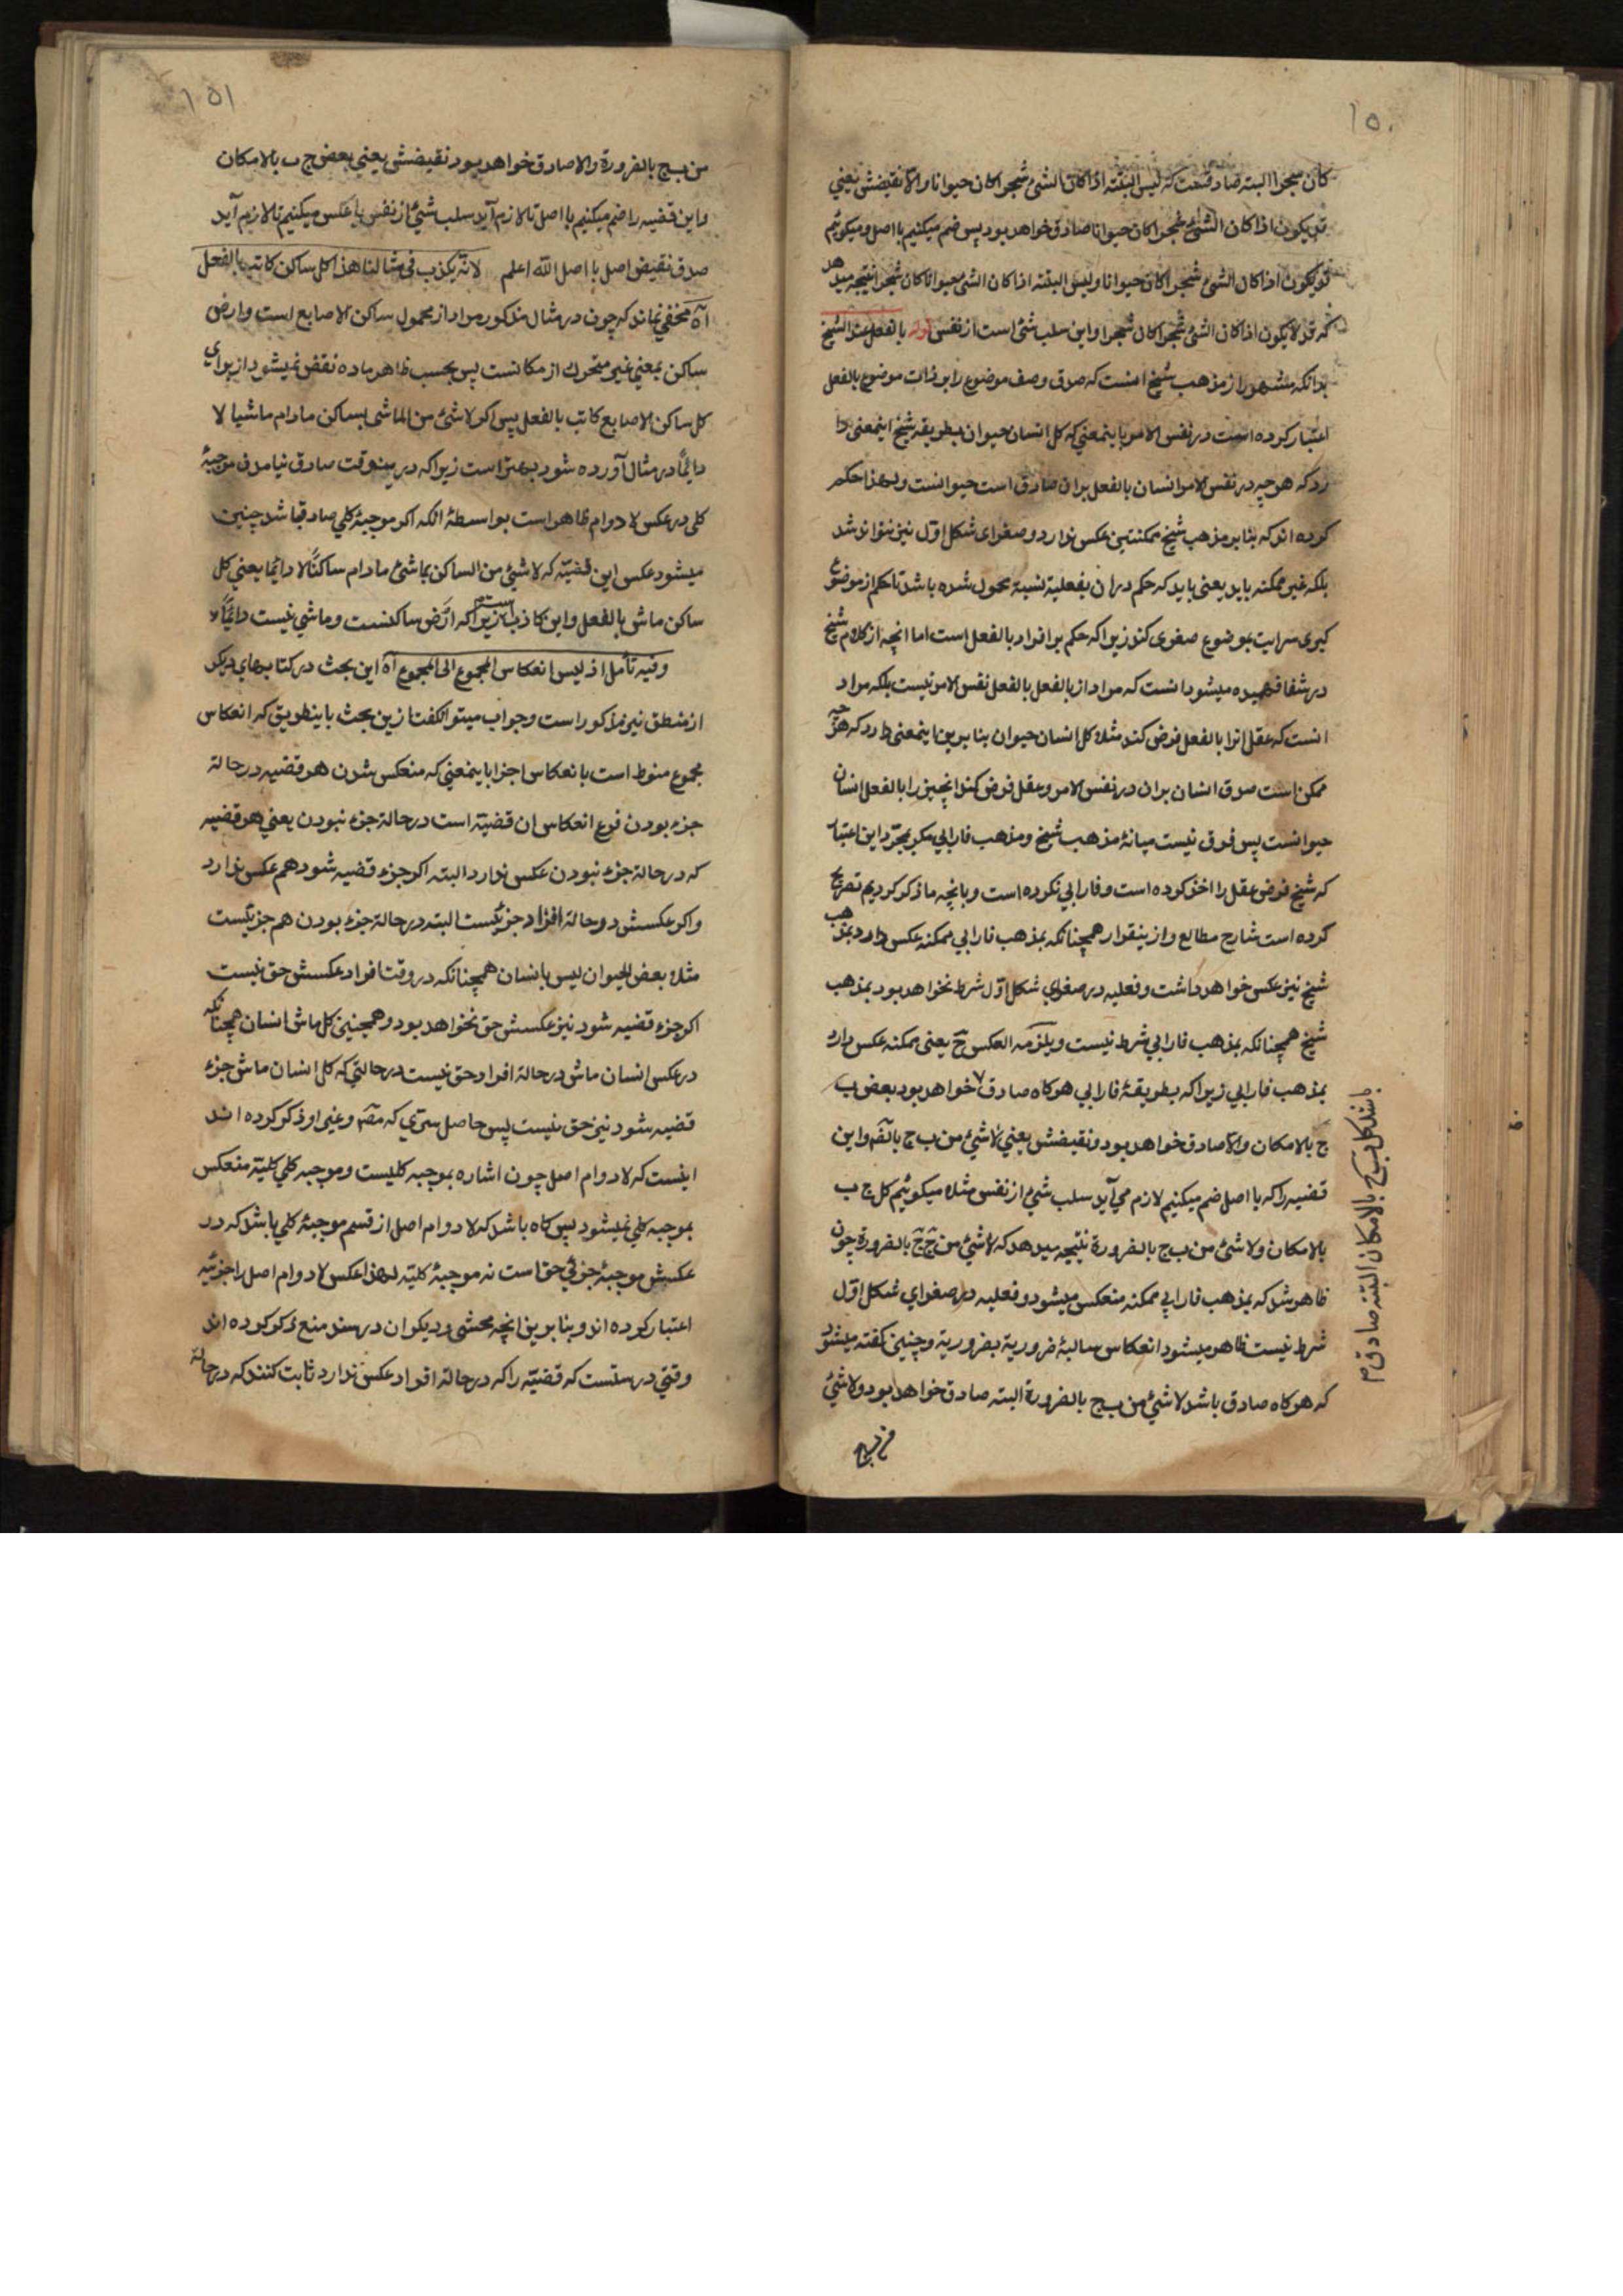 ۱۵۰
كان شجرا البته صادقست كه ليس البتة اذا كان الشئ شجرا كان حيوانا والا نقيضش يعني
قد يكون اذا كان الشئ شجرا كان حيوانا صادق خواهد بود پس ضم ميكنيم با اصل و ميكوئيم
قد يكون اذا كان الشئ شجرا كان حيوانا وليس البتته اذا كان الشئ حيوانا كان شجرا نتيجه ميدهد
كه قد لا يكون اذا كان الشئ شجرا كان شجرا واين سلب شئ است از نفس قوله بالفعل عند الشيخ
بدانكه مشهور از مذهب شيخ انست كه صدق وصف موضوع را بر ذات موضوع بالفعل
اعتبار كرده است در نفس الامر باينمعني كه كل انسان حيوان بطريقه شيخ اينمعنى دا
رد كه هرچه در نفس الامر انسان بالفعل بران صادق است حيوانست ولهذا حكم
كرده اند كه بنا بر مذهب شيخ ممكنتين عكس ندارد و صغراى شكل اول نيز نتواند شد
بلكه غير ممكنه بايد يعنى بايد كه حكم دران بفعلية نسبة محمول شده باشد تا حكم از موضوع
كبرى سرايت بموضوع صغرى كند زيرا كه حكم بر افراد بالفعل است اما انچه از كلام شيخ
در شفا فهميده ميشود انست كه مراد از بالفعل بالفعل نفس الامر نيست بلكه مراد
انست كه عقل انرا بالفعل فرض كند مثلا كل انسان حيوان بنا برين اينمعنى دارد كه هرچه
ممكن است صدق انسان بران در نفس الامر وعقل فرض كند انچيز را بالفعل انسان
حيوانست پس فرق نيست ميانهٔ مذهب شيخ ومذهب فارابي مكر بمجرد اين اعتبار
كه شيخ فرض عقل را اخذ كرده است وفارابي نكرده است وبانچه ما ذكر كرديم تصريح
كرده است شارح مطالع وازينقرار همچنانكه بمذهب فارابي ممكنه عكس دارد بمذهب
شيخ نيز عكس خواهد داشت وفعليه در صغراي شكل اول شرط نخواهد بود بمذهب
شيخ همچنانكه بمذهب فارابي شرط نيست ويلزمه العكس ح يعنى ممكنه عكس دارد
بمذهب فارابي زيرا كه بطريقهٔ فارابي هركاه صادق خواهد بود بعض ب
ج بالامكان والا صادق خواهد بود ونقيضش يعني لا شئ من ب ج بالضر واين
قضيه را كه با اصل ضم ميكنيم لازم مي آيد سلب شئ از نفس مثلا ميكوئيم كل ج ب
بالامكان ولا شئ من ب ج بالضرورة نتيجه ميدهد كه لا شئ من ج ج بالضرورة چون
ظاهر شد كه بمذهب فارابي ممكنه منعكس ميشود وفعليه در صغراي شكل اول
شرط نيست ظاهر ميشود انعكاس سالبهٔ ضرورية بضرورية وچنين كفته ميشود
كه هركاه صادق باشد لا شئ من ب ج بالضرورة البته صادق خواهد بود ولا شئ
من ب ج
باشد كل ب ج بالامكان البته صادق م
۱۵۱
من ب ج بالضرورة والا صادق خواهد بود نقيضش يعني بعض ج ب بالامكان
واين قضيه را ضم ميكنيم با اصل تا لازم آيد سلب شئ از نفس يا عكس ميكنيم تا لازم آيد
صدق نقيض اصل با اصل الله اعلم لانه يكذب في مثالنا هذا كل ساكن كاتب بالفعل
آه مخفي نماند كه چون در مثال مذكور مراد از محمول ساكن الاصابع است وارض
ساكن بمعني غير متحرك از مكانست پس بحسب ظاهر ماده نقض نميشود از براي
كل ساكن الاصابع كاتب بالفعل پس اكر لا شئ من الماشي بساكن مادام ماشيا لا
دائماً در مثال آورده شود بهتر است زيرا كه درينوقت صادق نيامدن موجبهٔ
كلى در عكس لا دوام ظاهر است بواسطهٔ انكه اكر موجبهٔ كلي صادق باشد چنين
ميشود عكس اين قضيته كه لا شئ من الساكن بماشئ مادام ساكنًا لا دائما يعني كل
ساكن ماش بالفعل واين كاذبست زيرا كه ارض ساكنست وماشي نيست دائماً م
وفيه تأمل اذ ليس انعكاس المجموع الى المجموع آه اين بحث در كتابهاي ديكر
از منطق نيز مذكور است وجواب ميتوان كفت ازين بحث باينطريق كه انعكاس
مجموع منوط است بانعكاس اجزا باينمعني كه منعكس شدن هر قضيه در حالة
جزء بودن فرع انعكاس ان قضيته است در حالة جزء نبودن يعني هر قضيه
كه در حالة جزء نبودن عكس ندارد البته اكر جزء قضيه شود هم عكس ندارد
واكر عكسش در حالة افراد جزئيست البته در حالة جزء بودن هم جزئيست
مثلا بعض الحيوان ليس بانسان همچنانكه در وقت افراد عكسش حق نيست
اكر جزء قضيه شود نيز عكسش حق نخواهد بود وهمچنين كل ماش انسان همچنانكه
در عكس انسان ماش در حالة افراد حق نيست در حالتي كه كل انسان ماش جزء
قضيه شود نيز حق نيست پس حاصل سري كه مص وغير او ذكر كرده اند
اينست كه لا دوام اصل چون اشاره بموجبه كليست وموجبه كلي كلية منعكس
بموجبه كلي نميشود پس كاه باشد كه لا دوام اصل از قسم موجبهٔ كلي باشد كه در
عكسش موجبهٔ جزئي حق است نه موجبهٔ كليته لهذا عكس لا دوام اصل را جزئيه
اعتبار كرده اند وبنا برين انچه محشى وديكران در سند منع ذكر كرده اند
وقتي درستست كه قضيته را كه در حالة افراد عكس ندارد ثابت كنند كه در حالة